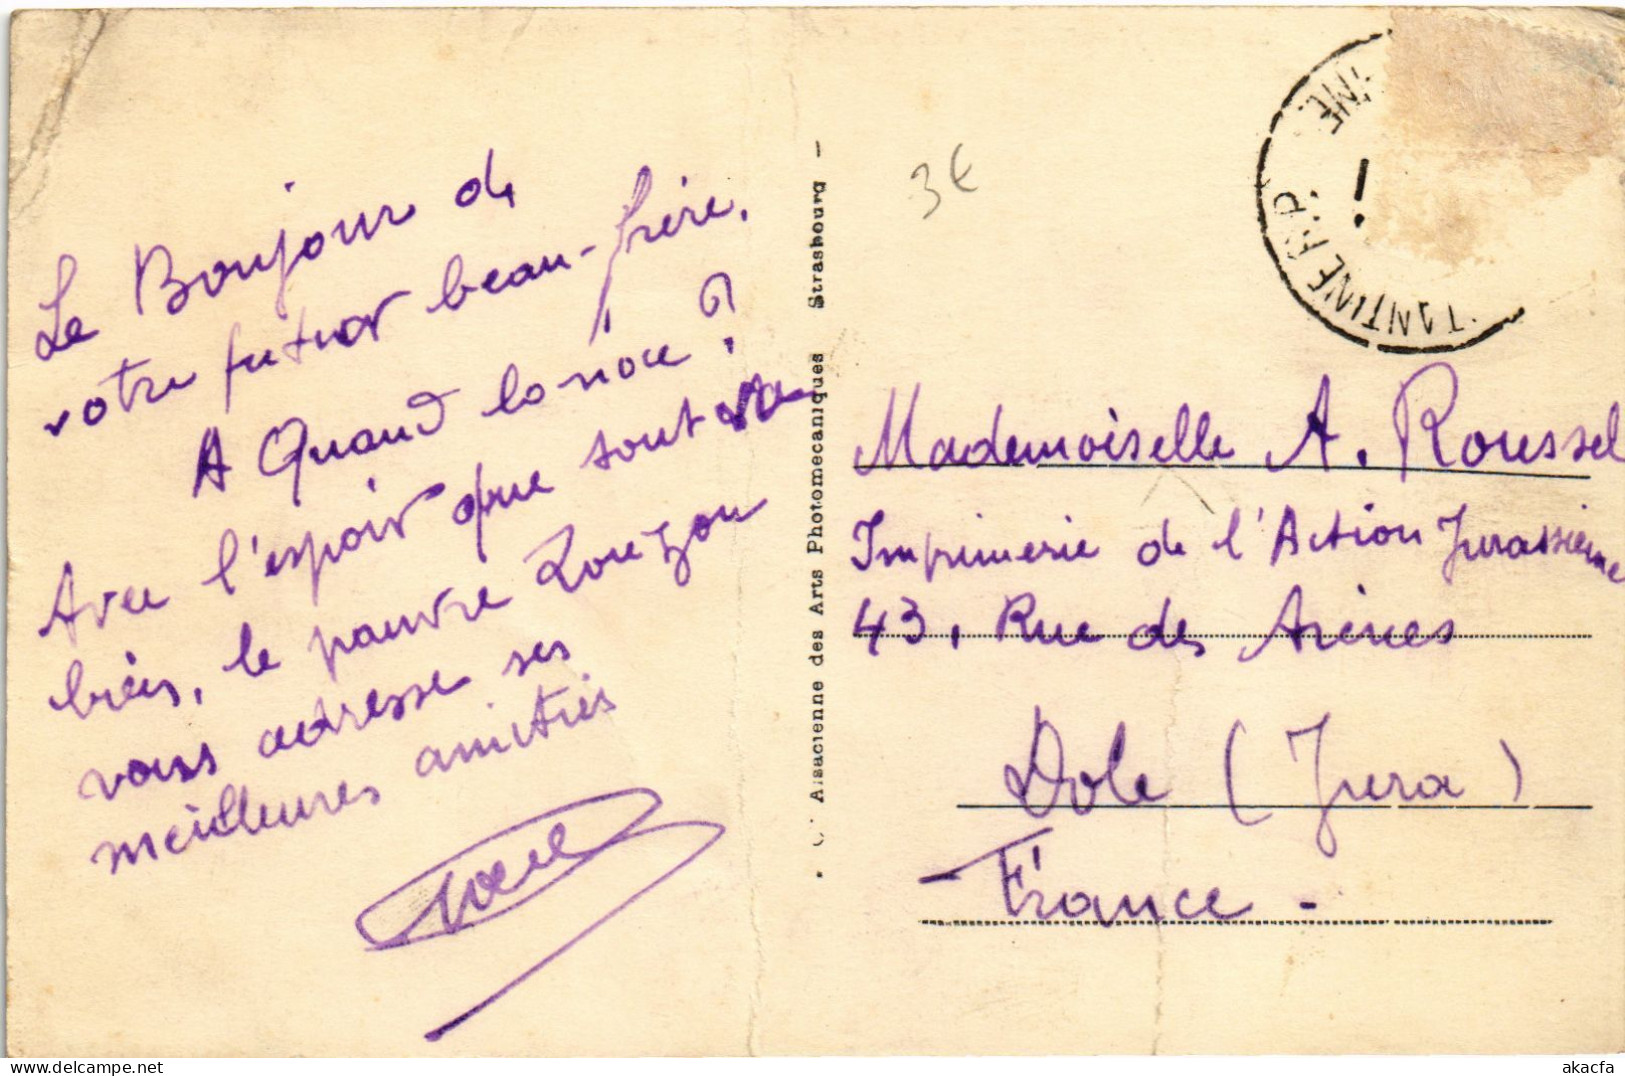 Le Bonjour de
votre futur beau-frère.
A Quand la noce ?
Avec l'espoir que tout va
bien, le pauvre Zouzou
vous adresse ses
meilleures amitiés
Alsacienne des Arts Photomecaniques Strasbourg -
3€
TANTINE R.P.
Mademoiselle A. Roussel
Imprimerie de l'Action Jurassienne
43, Rue des Arènes
Dole (Jura)
France -
akacfa